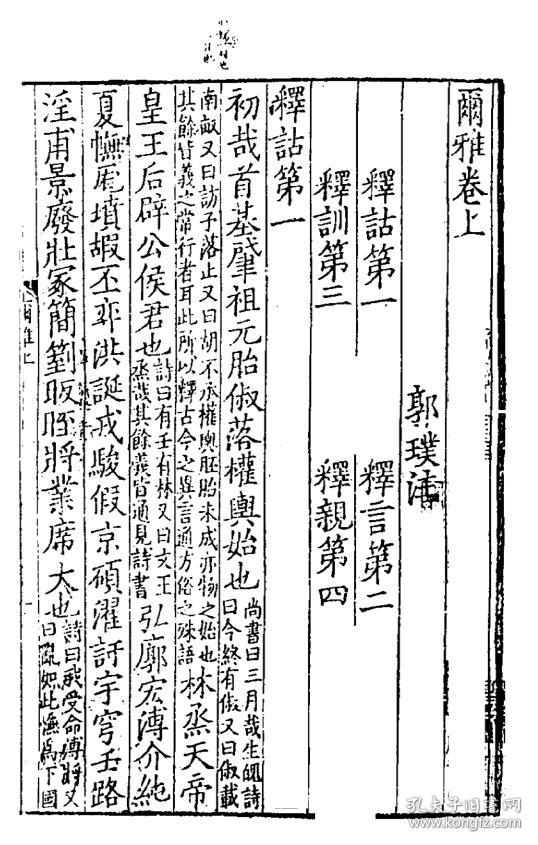 爾雅卷上
郭璞注
釋詁第一 釋言第二
釋訓第三 釋親第四
釋詁第一
初哉首基肈祖元胎俶落權輿始也
尚書曰三月哉生魄詩
曰令終有俶又曰俶載
南畝又曰訪予落止又曰胡不承權輿胚胎未成亦物之始也
其餘皆義之常行者耳此所以釋古今之異言通方俗之殊語
林烝天帝
皇王后辟公侯君也
詩曰有壬有林又曰文王
烝哉其餘義皆通見詩書
弘廓宏溥介純
夏幠厖墳嘏丕弈洪誕戎駿假京碩濯訏宇穹壬路
淫甫景廢壯冢簡箌昄晊將業席大也
詩曰我受命溥將又
曰亂如此幠為下國
爾雅上
孔夫子旧书网
www.kongfz.com